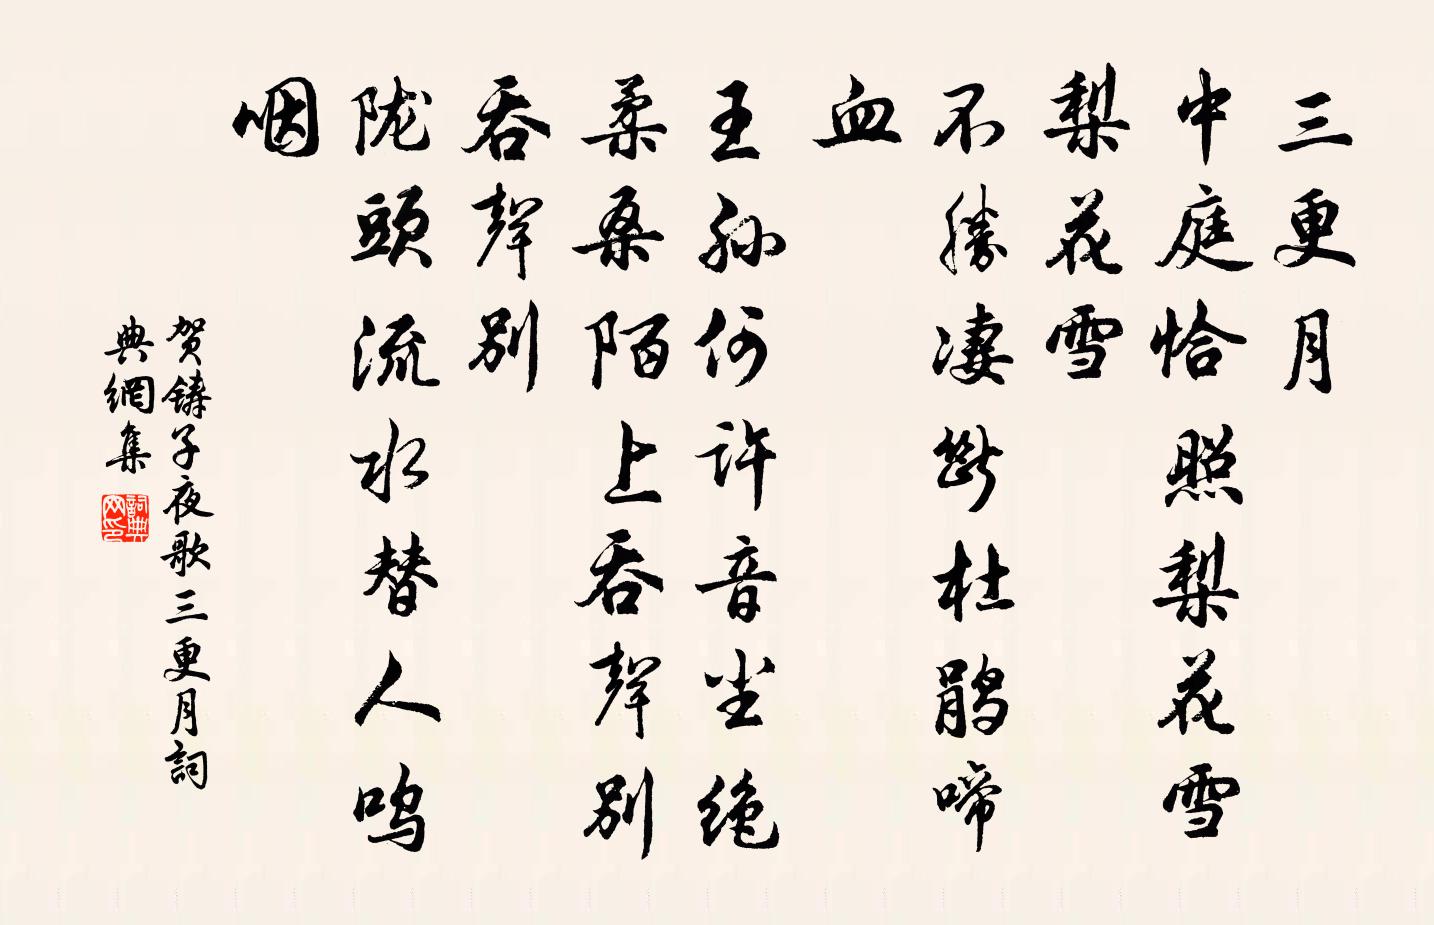 三更月
中庭恰照梨花雪
梨花雪
不勝凄斷杜鹃啼
血
王孙何许音尘绝
柔桑陌上吞聲别
吞聲别
陇頭流水替人鸣
咽
贺鑄子夜歌三更月詞
典網集
詞典
网印